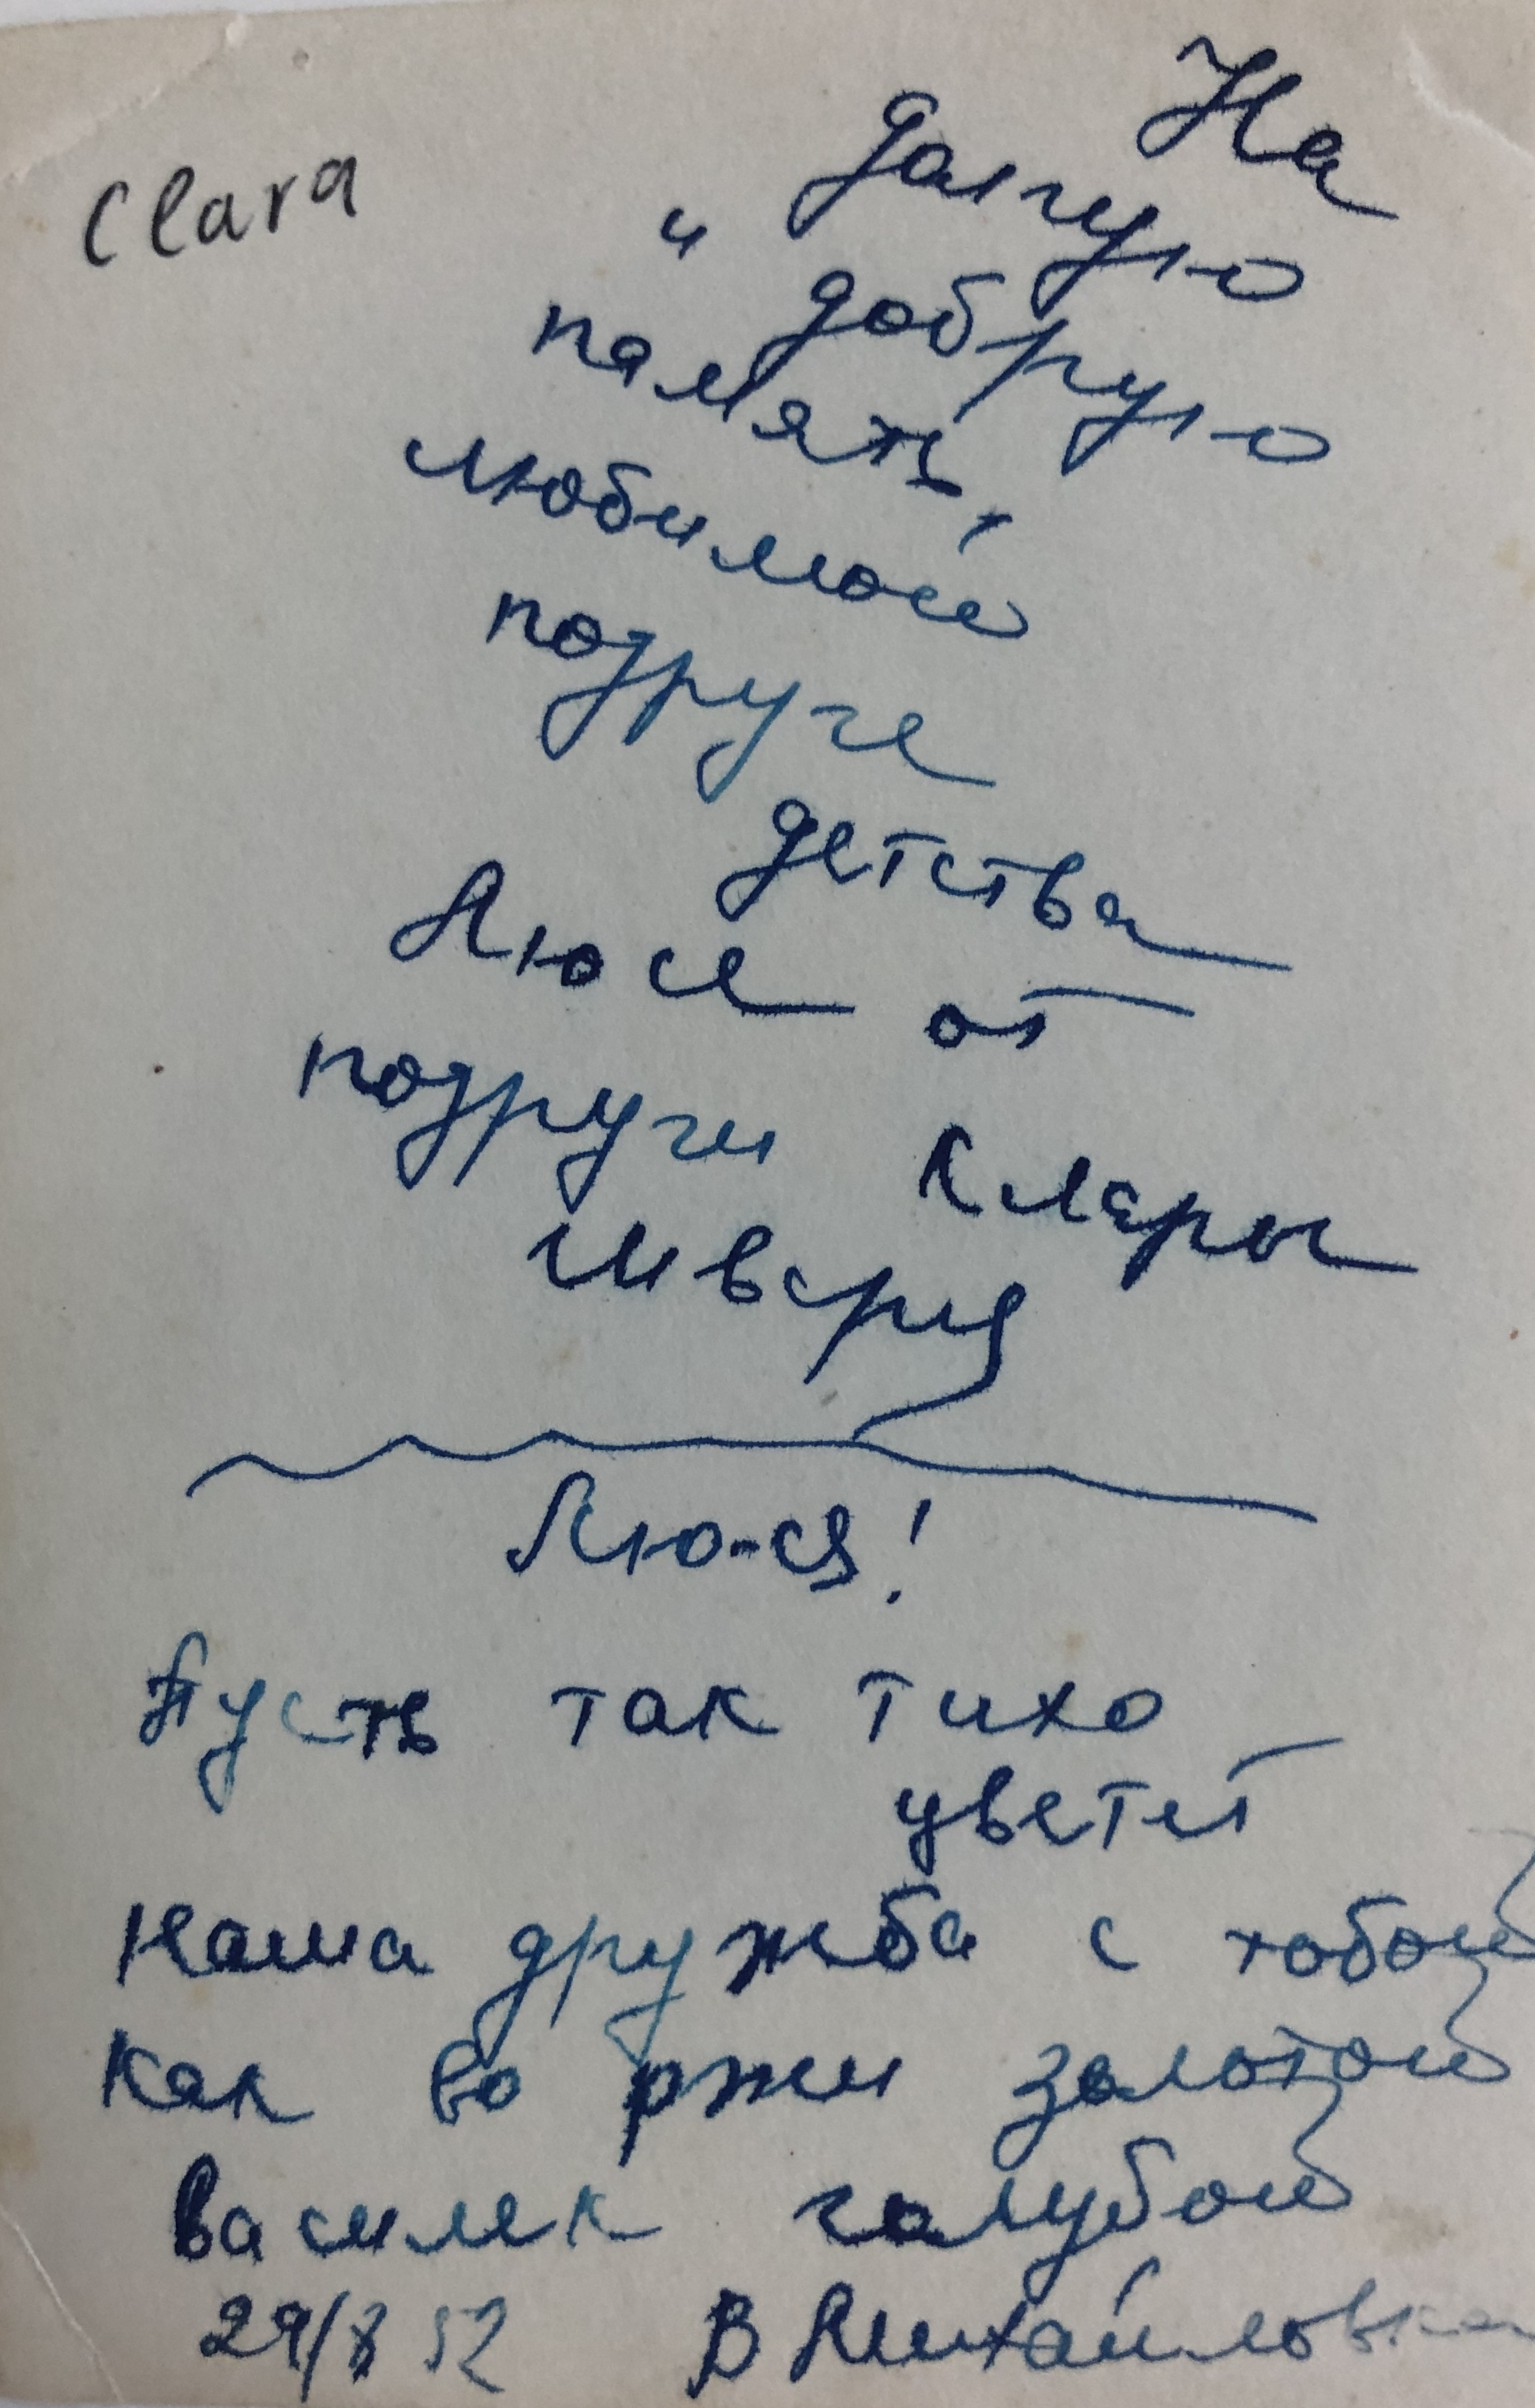 Clara
На
долгую
и добрую
память,
любимой
подруге
детства
Люсе от
подруги Клары
Шварц
Лю-ся!
Пусть так тихо
цветет
Наша дружба с тобой
Как во ржи золотой
Василек голубой
29/8 52 В Михайловка